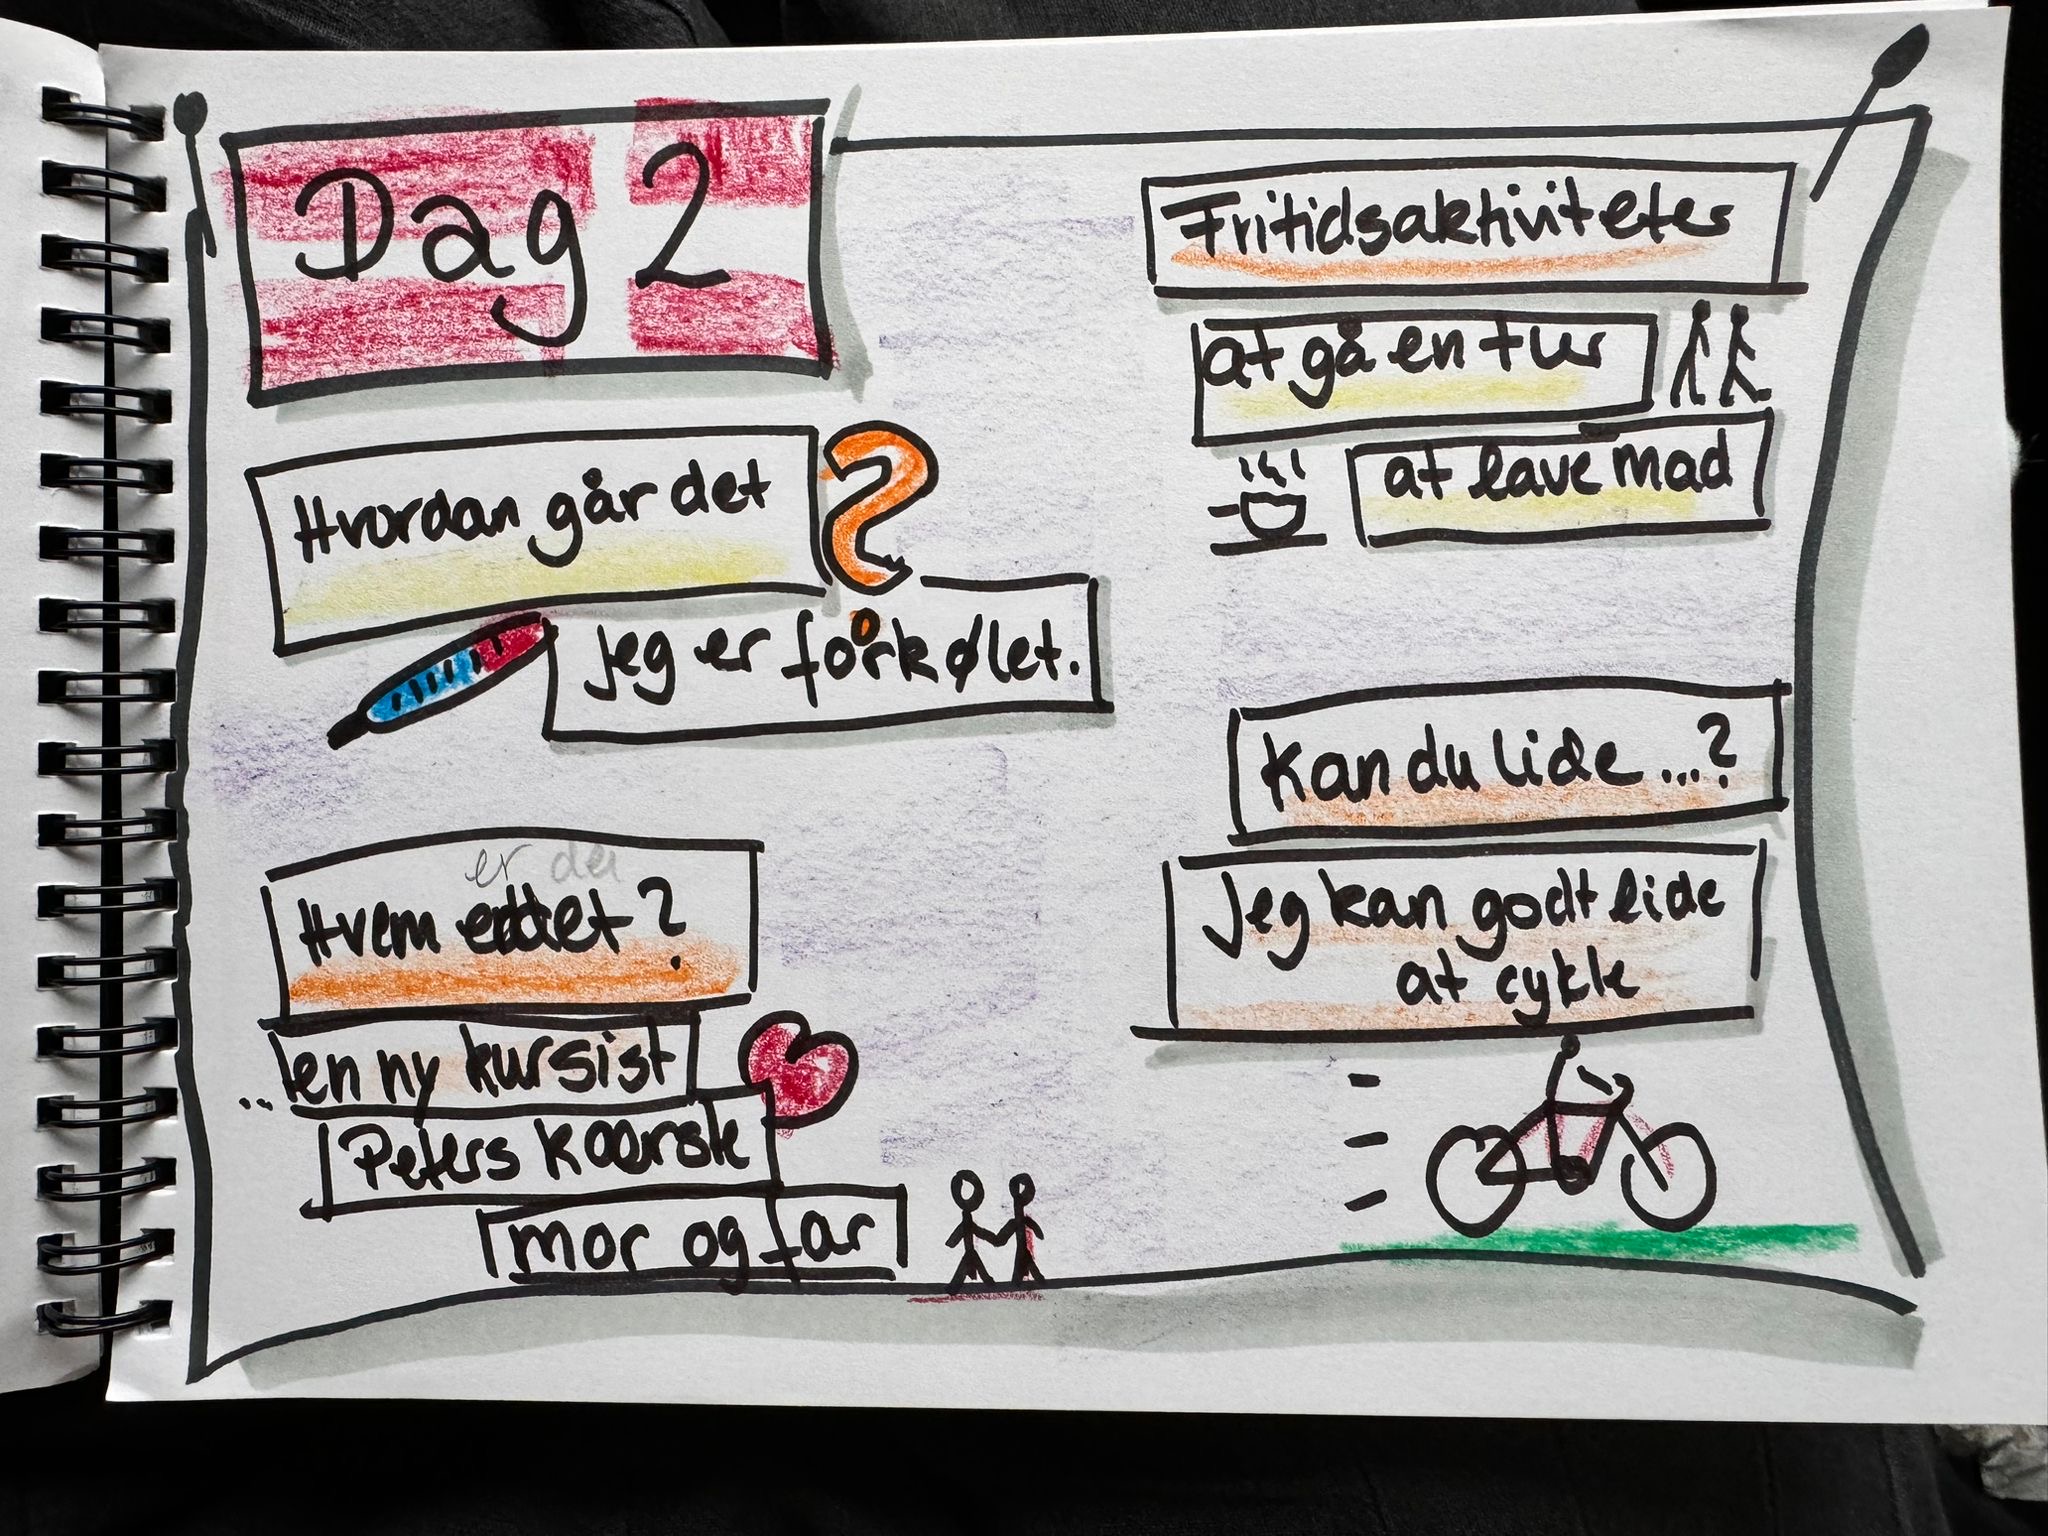 Dag 2
Hvordan går det
?
Jeg er forkølet.
er det
Hvem er det?
..en ny kursist
Peters kæreste
mor og far
Fritidsaktiviteter
at gå en tur
at lave mad
Kan du lide ...?
Jeg kan godt lide
at cykle